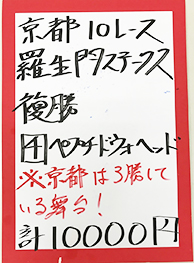 京都10レース
羅生門ステークス
複勝
4 ペプチドヴォヘッド
※京都は3勝して
いる舞台!
計10000円